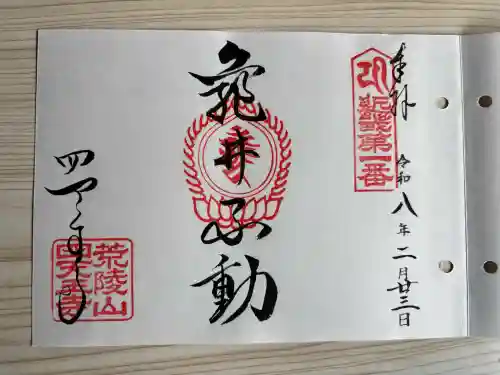 奉拝
令和八年二月廿三日
新西国第一番
亀井不動
四天王寺
荒陵山
四天王寺